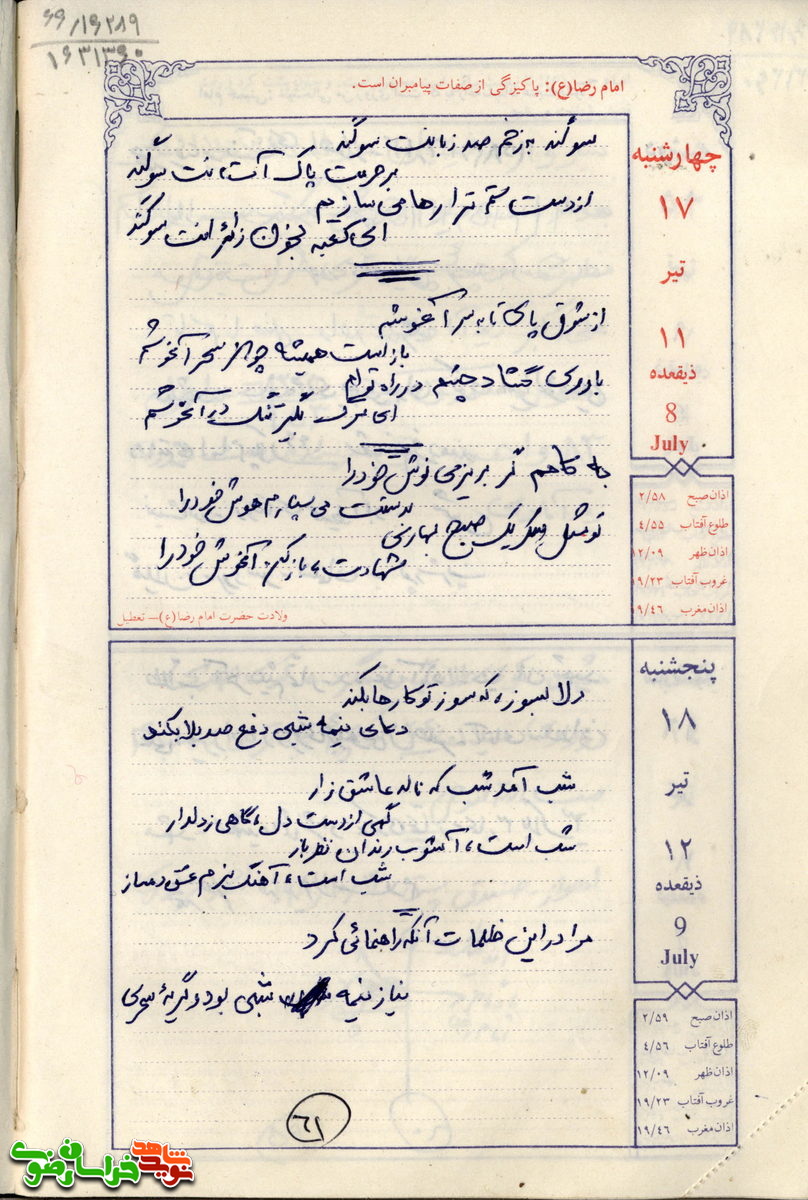 ۶۶/۱۶۲۸۹
۱۶۳۱۳۶۰
امام رضا(ع): پاکیزگی از صفات پیامبران است.
چهارشنبه
۱۷
تیر
۱۱
ذیقعده
8
July
سوگند به زخم صد زبانت سوگند
بر حرمت پاک آستانت سوگند
از دست ستم ترا رها می سازیم
ای کعبه بخون زائرانت سوگند
از شوق پای تا به سر آغوشم
باز است همیشه چو سحر آغوشم
با روی گشاده چشم در راه توام
ای مرگ بگیر تنگ در آغوشم
لبریز می نوش خود را
بدستت می سپارم هوش خود را
تو مثل یک صبح بهاری
شهادت، باز کن آغوش خود را
اذان صبح ۲/۵۸
طلوع آفتاب ۴/۵۵
اذان ظهر ۱۲/۰۹
غروب آفتاب ۱۹/۲۳
اذان مغرب ۱۹/۴۶
ولادت حضرت امام رضا(ع) – تعطیل
پنجشنبه
۱۸
تیر
۱۲
ذیقعده
9
July
دلا بسوز، که سوز تو کارها بکند
دعای نیمه شبی دفع صد بلا بکند
شب آمد شب که نالد عاشق زار
گهی از دست دل، گاهی ز دلدار
شب است، آشوب رندان نظرباز
شب است، آهنگ بزم عشق دمساز
مرا در این ظلمات آنکه راهنمائی کرد
نیاز نیمه شبی بود و گریهٔ سحری
اذان صبح ۲/۵۹
طلوع آفتاب ۴/۵۶
اذان ظهر ۱۲/۰۹
غروب آفتاب ۱۹/۲۳
اذان مغرب ۱۹/۴۶
۶۱
نوید شاهد
خراسان رضوی